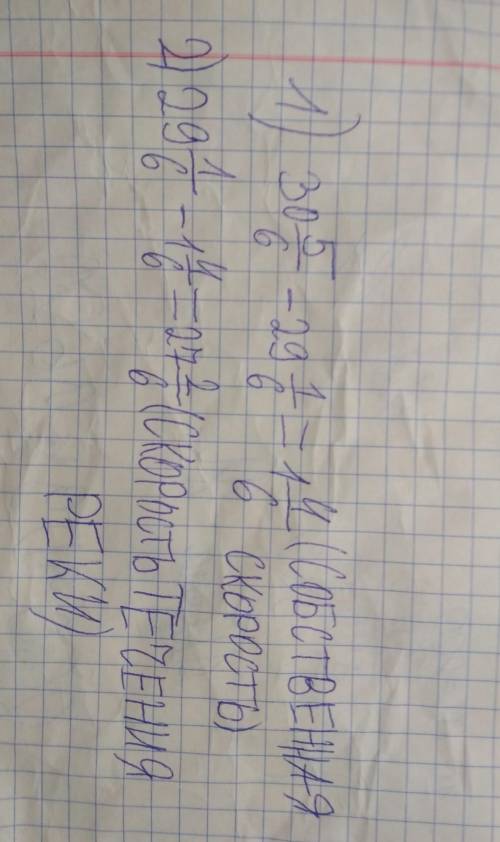 1) 30 5/6 - 29 1/6 = 1 4/6 (СОБСТВЕННАЯ
СКОРОСТЬ)
2) 29 1/6 - 1 4/6 = 27 2/6 (СКОРОСТЬ ТЕЧЕНИЯ
РЕКИ)